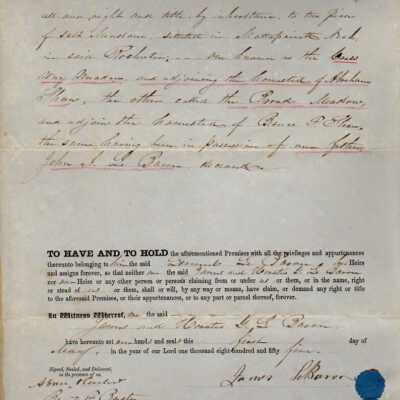 all our right and title by inheritance to two pieces
of Salt Meadow, situated in Mattapoisett Neck
in said Rochester, one known as the Cross
Way Meadow, and adjoining the homestead of Abraham
the other called the Meadow,
and adjoin the homestead of P.
the same having been in possession of our father
John Le Baron deceased
TO HAVE AND TO HOLD the aforementioned Premises with all the privileges and appurtenances
thereunto belonging to him the said Le Baron his Heirs
and assigns forever, so that neither we the said James and Horatio G. Le Baron
nor our Heirs or any other person or persons claiming from or under us or them, or in the name, right
or stead of us or them, shall or will, by any way or means, have, claim, or demand any right or title
to the aforesaid Premises, or their appurtenances, or to any part or parcel thereof, forever.
In Witness Whereof, we the said
James and Horatio G. Le Baron
have hereunto set our hands and seals this first day of
May, in the year of our Lord one thousand eight hundred and fifty five.
Signed, Sealed, and Delivered,
in the presence of us,
James LeBaron